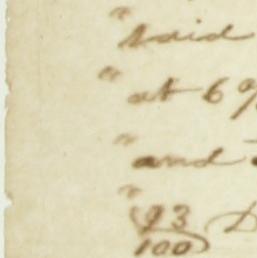 " said
" at 6 %
" and
" (93/100) D